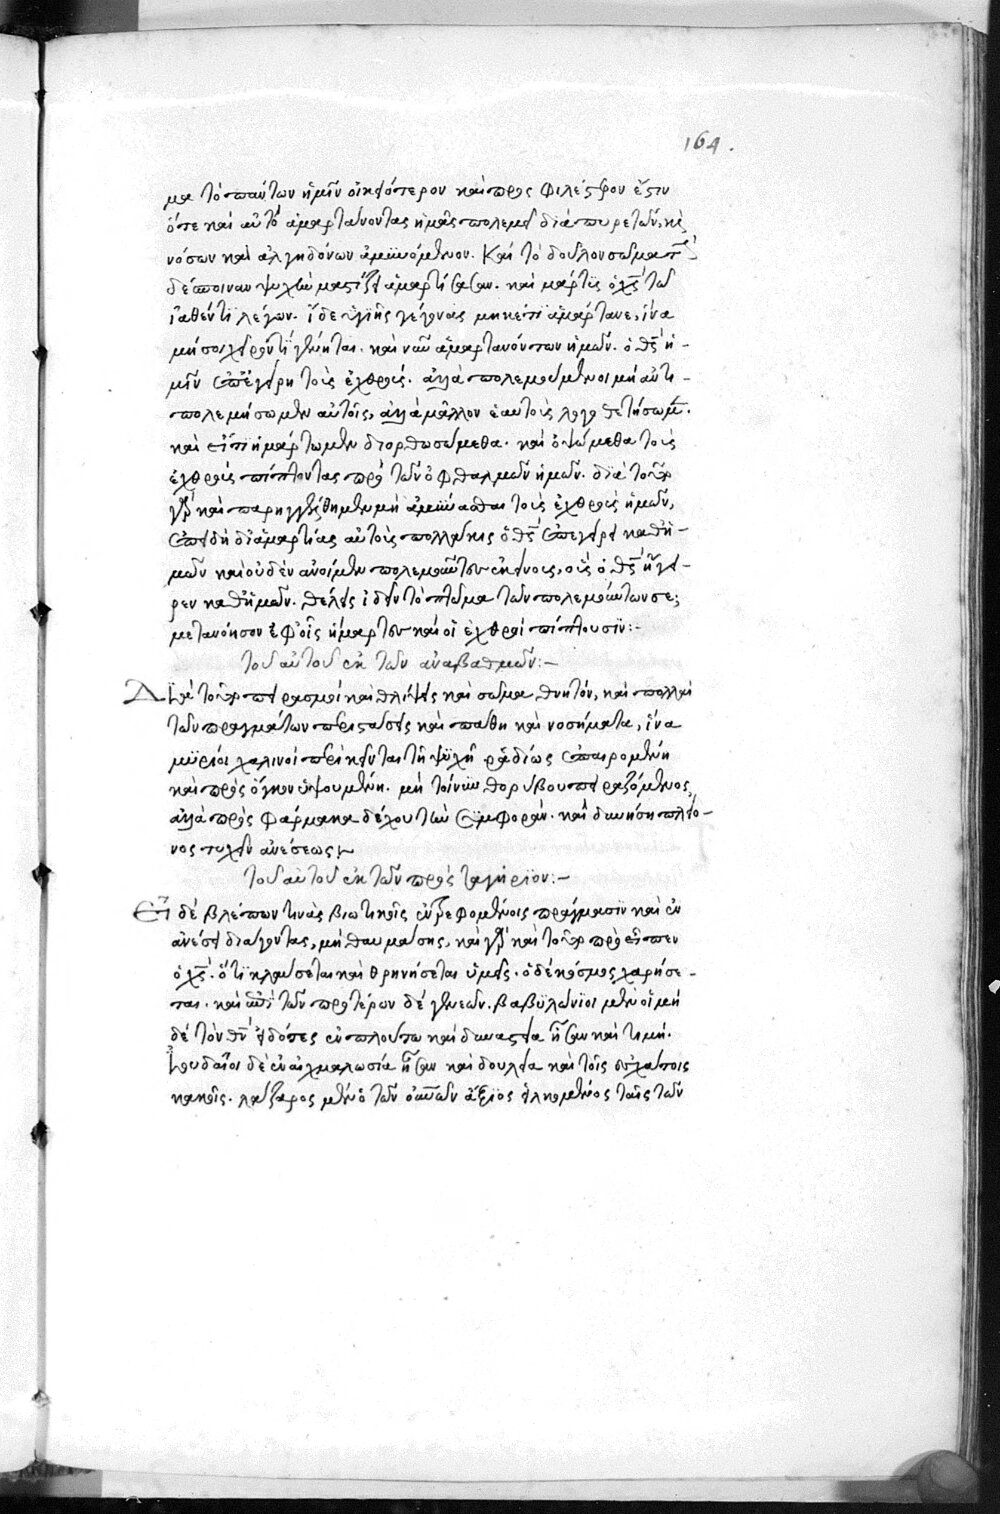 164.
μα τὸ πάντων ἡμῖν οἰκειότερον καὶ προσφιλέστερον ἔστιν
ὅτε καὶ αὐτὸ ἁμαρτάνοντας ἡμᾶς πολεμεῖ διὰ πυρετῶν, καὶ
νόσων καὶ ἀλγηδόνων ἀμϋνόμενον. Καὶ τὸ δοῦλον σῶμα τὴν
δέσποιναν ψυχὴν μαστίζει ἁμαρτήσασαν. καὶ μάρτϋς ὁ χς τῶ
ἰαθέντι λέγων. ἴδε ὑγιὴς γέγονας μηκέτι ἁμάρτανε, ἵνα
μή σοι χεῖρόν τι γένηται. καὶ νῦν ἁμαρτανόντων ἡμῶν. ὁ θς ἡ-
μῖν ἐπεγείρει τοὺς ἐχθρούς. ἀλλὰ πολεμούμενοι μὴ ἀντι-
πολεμήσωμεν αὐτοῖς, ἀλλὰ μᾶλλον ἑαυτοὺς λογοθετήσωμεν.
καὶ εἴ τι ἡμάρτομεν διορθωσώμεθα. καὶ ὀψώμεθα τοὺς
ἐχθροὺς πίπτοντας πρὸ τῶν ὀφθαλμῶν ἡμῶν. διὰ τοῦτο
γὰρ καὶ παρηγγέλθημεν μὴ ἀμϋνασθαι τοὺς ἐχθροὺς ἡμῶν,
ἐπειδὴ δι' ἁμαρτίας αὐτοὺς πολλάκις ὁ θς ἐπεγείρει καθ' ἡ-
μῶν καὶ οὐδὲν ἀνοίμεν πολεμοῦντες ἐκείνοις, οὓς ὁ θς ἤγει-
ρεν καθ' ἡμῶν. θέλεις ἰδεῖν τὸ πτῶμα τῶν πολεμούντων σε;
μετανόησον ἐφ' οἷς ἥμαρτες καὶ οἱ ἐχθροὶ πίπτουσϊν:-
τοῦ αὐτοῦ ἐκ τῶν ἀναβαθμῶν:-
Διὰ τοῦτο πειρασμοὶ καὶ θλίψεις καὶ σῶμα θνητόν, καὶ πολλαὶ
τῶν πραγμάτων περιστάσεις καὶ πάθη καὶ νοσήματα, ἵνα
μϋρίοι χαλινοὶ περικέωνται τῆ ψυχῆ ῥαδίως ἐπαιρομένη
καὶ πρὸς ὄγκον ὑψουμένη. μὴ τοίνυν θορυβοῦ πειραζόμενος,
ἀλλὰ πρὸς φάρμακα δέχου τὴν συμφοράν. καὶ δυνήση πλείο-
νος τυχεῖν ἀνέσεως:-
τοῦ αὐτοῦ ἐκ τῶν πρὸς σταγείριον:-
Εἰ δὲ βλέπων τινὰς βιωτικοῖς ἐντρεφομένοις πράγμασϊν καὶ ἐν
ἀνέσει διάγοντας, μὴ θαυμάσης, καὶ γὰρ καὶ τοῦτο προεῖπεν
ὁ χς. ὅτι κλαύσεται καὶ θρηνήσεται ὑμεῖς. ὁ δὲ κόσμος χαρήσε-
ται. καὶ ἐπὶ τῶν προτέρων δὲ γενεῶν. βαβϋλώνϊοι μὲν οἱ μὴ
δὲ τὸν θν εἰδότες ἐν πλούτω καὶ δυναστεία ἦσαν καὶ τιμῆ.
Ἰουδαῖοι δὲ ἐν αἰχμαλωσία ἦσαν καὶ δουλεία καὶ τοῖς ἐσχάτοις
κακοῖς. λάζαρος μὲν ὁ τῶν οὐνῶν ἄξιος εἱλκομένος ταῖς τῶν